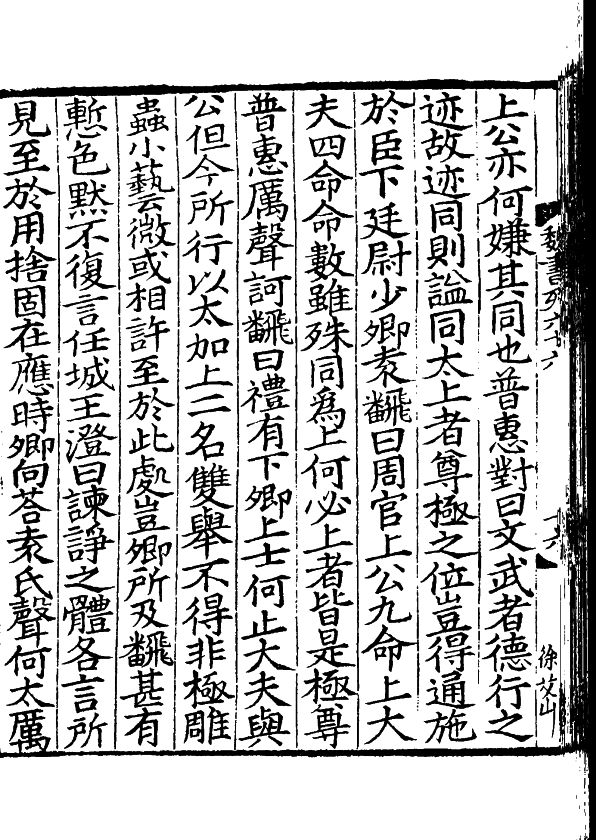 魏書列六十六
十六
徐艾山
上公亦何嫌其同也普惠對曰文武者德行之
迹故迹同則諡同太上者尊極之位豈得通施
於臣下廷尉少卿袁翻曰周官上公九命上大
夫四命命數雖殊同爲上何必上者皆是極尊
普惠厲聲訶翻曰禮有下卿上士何止大夫與
公但今所行以太加上二名雙舉不得非極雕
蟲小藝微或相許至於此處豈卿所及翻甚有
慙色默不復言任城王澄曰諫諍之體各言所
見至於用捨固在應時卿向荅袁氏聲何太厲